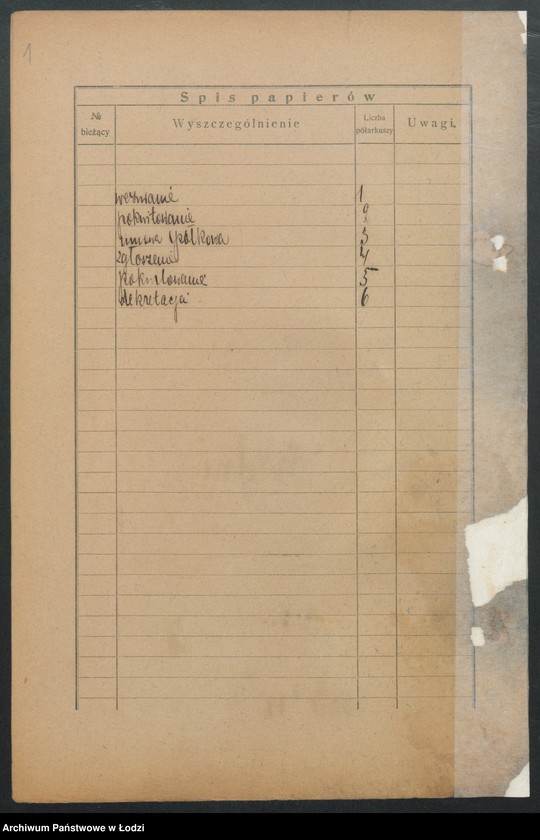 1
Spis papierów
№ bieżący
Wyszczególnienie
Liczba półarkuszy
Uwagi.
wezwanie 1
pokwitowanie 2
umowa spółkowa 3
zgłoszenie 4
pokwitowanie 5
dekretacja 6
Archiwum Państwowe w Łodzi